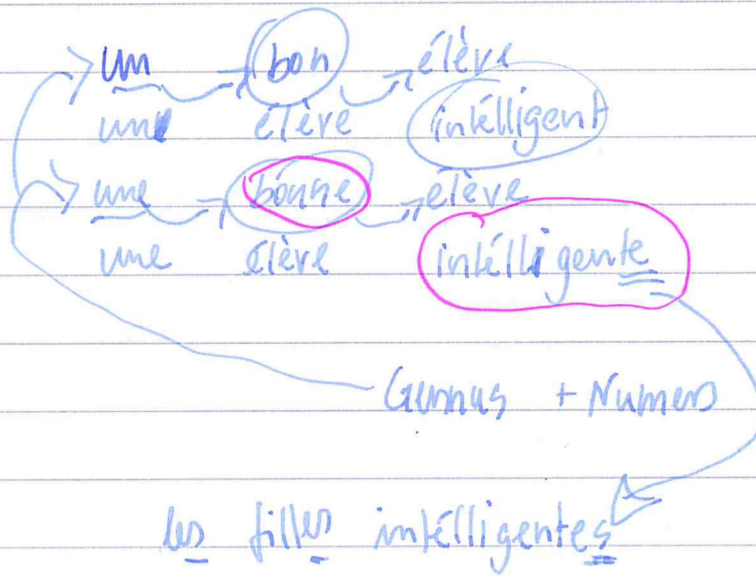 un bon élève
une élève intélligent
une bonne élève
une élève intélligente
Gennus + Numers
les filles intélligentes